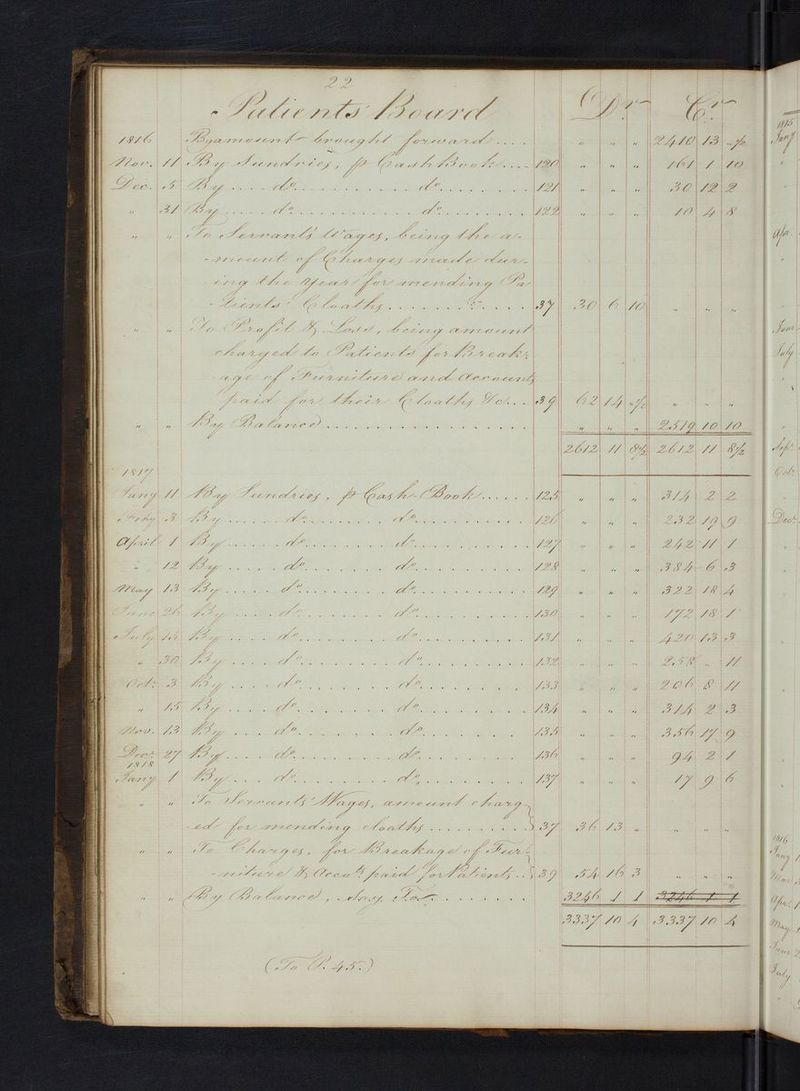 22
Patients Board Dr. Cr.
1816 By amount brought forward .... " " " 2410 13 -½
Nov. 11 By Sundries, pr Cash Book .... 120 " " " 161 1 10
Dec. 5 By ..... do. ........ do. ........ 121 " " " 30 12 2
" 31 By ..... do. ........ do. ........ 122 " " " 10 4 8
" " To Servants Wages, being the a-
-mount of Charges made dur-
ing the year for mending Pa
-tients' Cloaths ........ 37 30 6 10 " " "
" " To Profit & Loss, being amount
charged to Patients for Break-
age of Furniture and accounts
paid for their Cloaths &c. .. 39 62 14 -½ " " "
" " By Balance ................ " " " 2519 10 10
2612 11 8½ 2612 11 8½
1817
Jany 11 By Sundries, pr Cash Book ...... 125 " " " 314 2 2
Feby 3 By ..... do. ........ do. ........ 126 " " " 232 19 9
April 1 By ..... do. ........ do. ........ 127 " " " 242 11 1
" 12 By ..... do. ........ do. ........ 128 " " " 384 6 3
May 13 By ..... do. ........ do. ........ 129 " " " 322 18 4
June 26 By ..... do. ........ do. ........ 130 " " " 172 18 1
July 15 By ..... do. ........ do. ........ 131 " " " 420 13 3
" 30 By ..... do. ........ do. ........ 132 " " " 258 " 11
Oct. 3 By ..... do. ........ do. ........ 133 " " " 206 8 11
" 15 By ..... do. ........ do. ........ 134 " " " 314 2 3
Nov. 13 By ..... do. ........ do. ........ 135 " " " 356 17 9
Decr. 27 By ..... do. ........ do. ........ 136 " " " 94 2 1
1818
Jany 1 By .... do. ........ do. ........ 137 " " " 17 9 6
" " To Servants' Wages, amount charg-
ed for mending cloaths .......... 37 36 13 " " " "
" " To Charges, for Breakage of Fur-
-niture & Accots. paid for Patients .. 39 54 16 3 " " "
" " By Balance, Say, To ........ 3246 1 1 3246 1 1
3337 10 4 3337 10 4
(To P. 45.)
1815
Jany
Apr.
June
July
Sepr.
Octr.
Decr.
1816
Jany 1
Mar.
Apr. 1
May
June 2
July